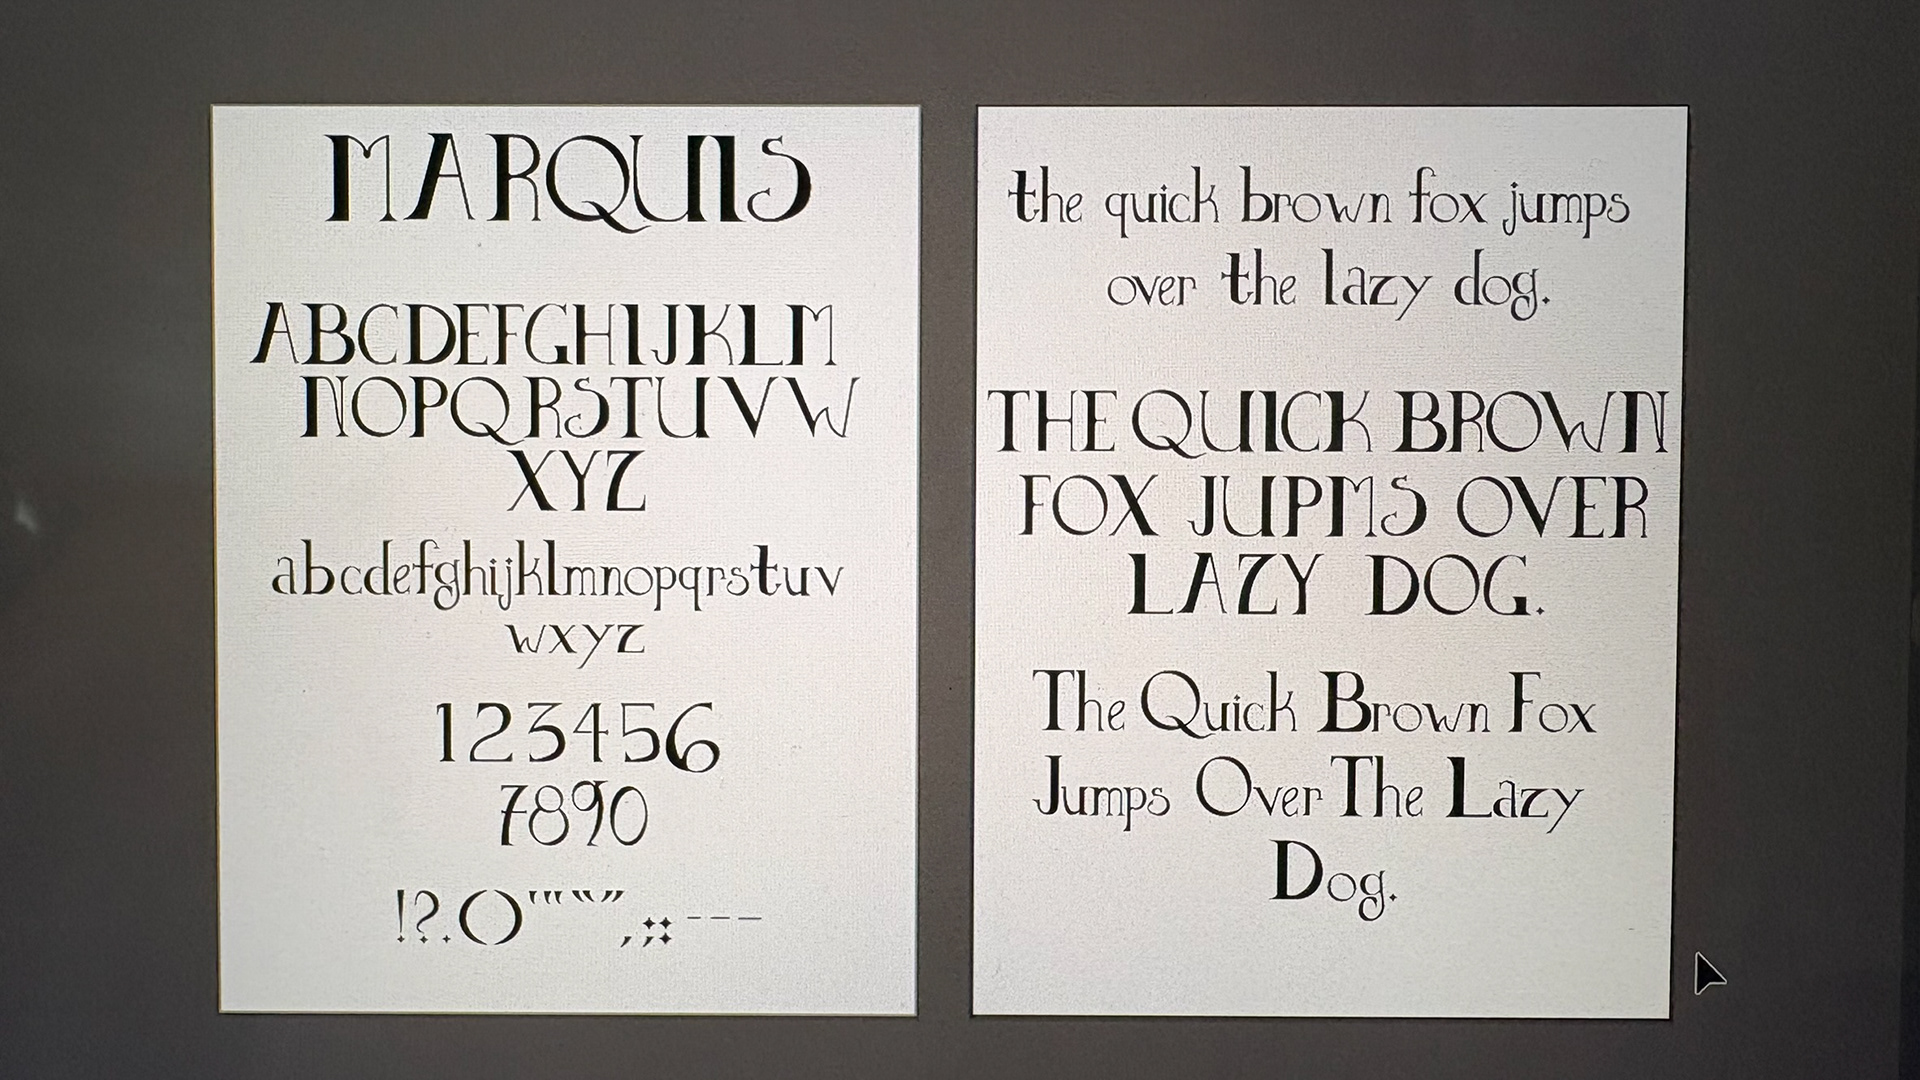 MARQUIS
ABCDEFGHIJKLM
NOPQRSTUVW
XYZ
abcdefghijklmnopqrstuv
wxyz
123456
7890
!?.()'"‘“”,;:---
the quick brown fox jumps
over the lazy dog.
THE QUICK BROWN
FOX JUPMS OVER
LAZY DOG.
The Quick Brown Fox
Jumps Over The Lazy
Dog.